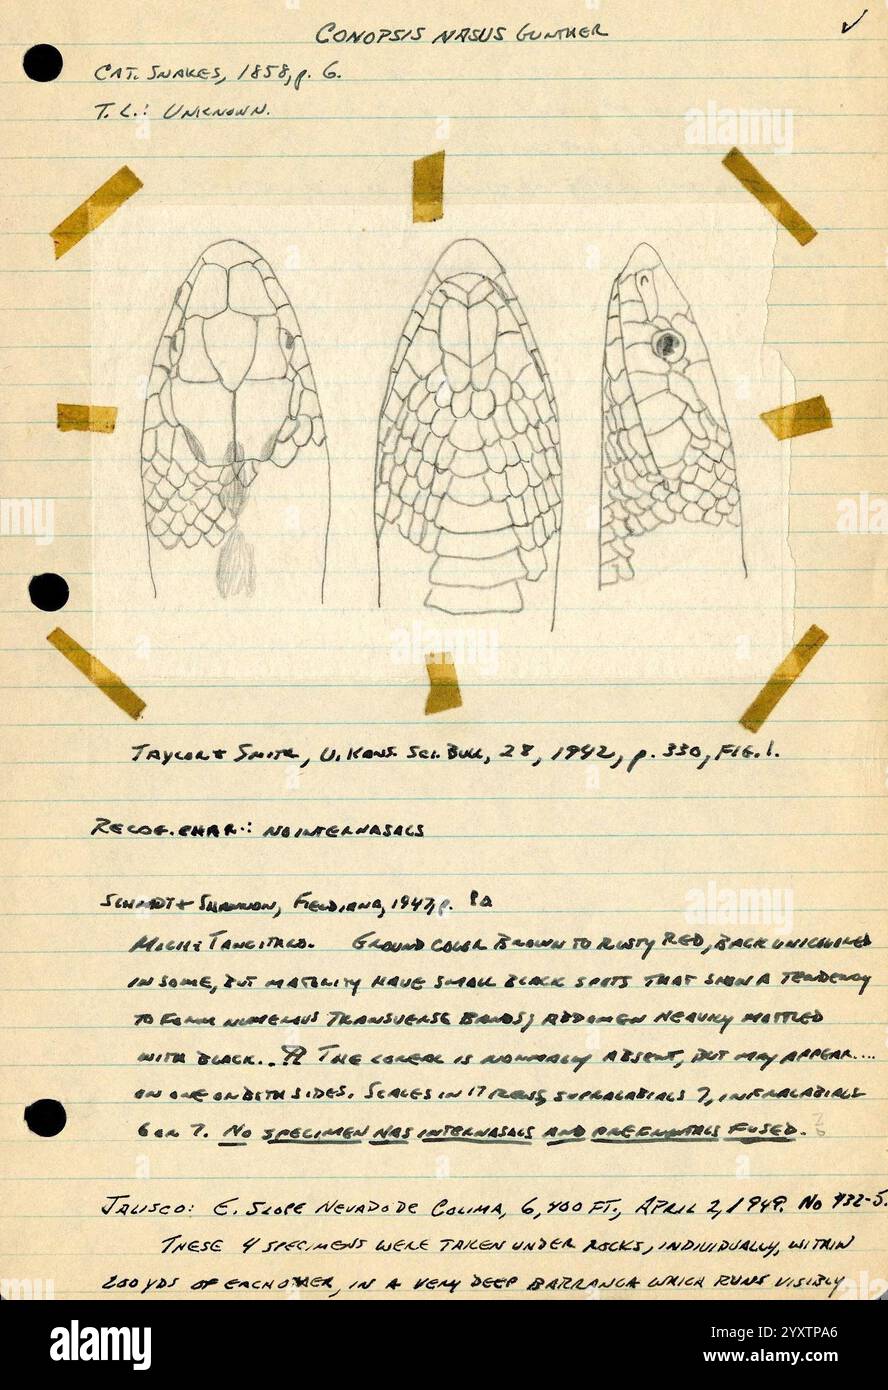 CONOPSIS NASUS GUNTHER
CAT. SNAKES, 1858, p. 6.
T. L.: UNKNOWN.
TAYLOR & SMITH, U. KANS. SCI. BULL, 28, 1942, p. 330, FIG. 1.
RECOG. CHAR.: NO INTERNASALS
SCHMIDT & SHANNON, FIELDIANA, 1947, p. 82
MICH: TANCITARO. GROUND COLOR BROWN TO RUSTY RED, BACK UNICOLORED
IN SOME, BUT MAJORITY HAVE SMALL BLACK SPOTS THAT SHOW A TENDENCY
TO FORM NUMEROUS TRANSVERSE BANDS; ABDOMEN HEAVILY MOTTLED
WITH BLACK... THE LOREAL IS NORMALLY ABSENT, BUT MAY APPEAR....
ON ONE OR BOTH SIDES. SCALES IN 17 ROWS, SUPRALABIALS 7, INFRALABIALS
6 OR 7. NO SPECIMEN HAS INTERNASALS AND PREFRONTALS FUSED.
JALISCO: E. SLOPE NEVADO DE COLIMA, 6,400 FT., APRIL 2, 1949. NO 432-5.
THESE 4 SPECIMENS WERE TAKEN UNDER ROCKS, INDIVIDUALLY, WITHIN
200 YDS OF EACH OTHER, IN A VERY DEEP BARRANCA WHICH RUNS VISIBLY
alamy
Image ID: 2YXTPA6
www.alamy.com